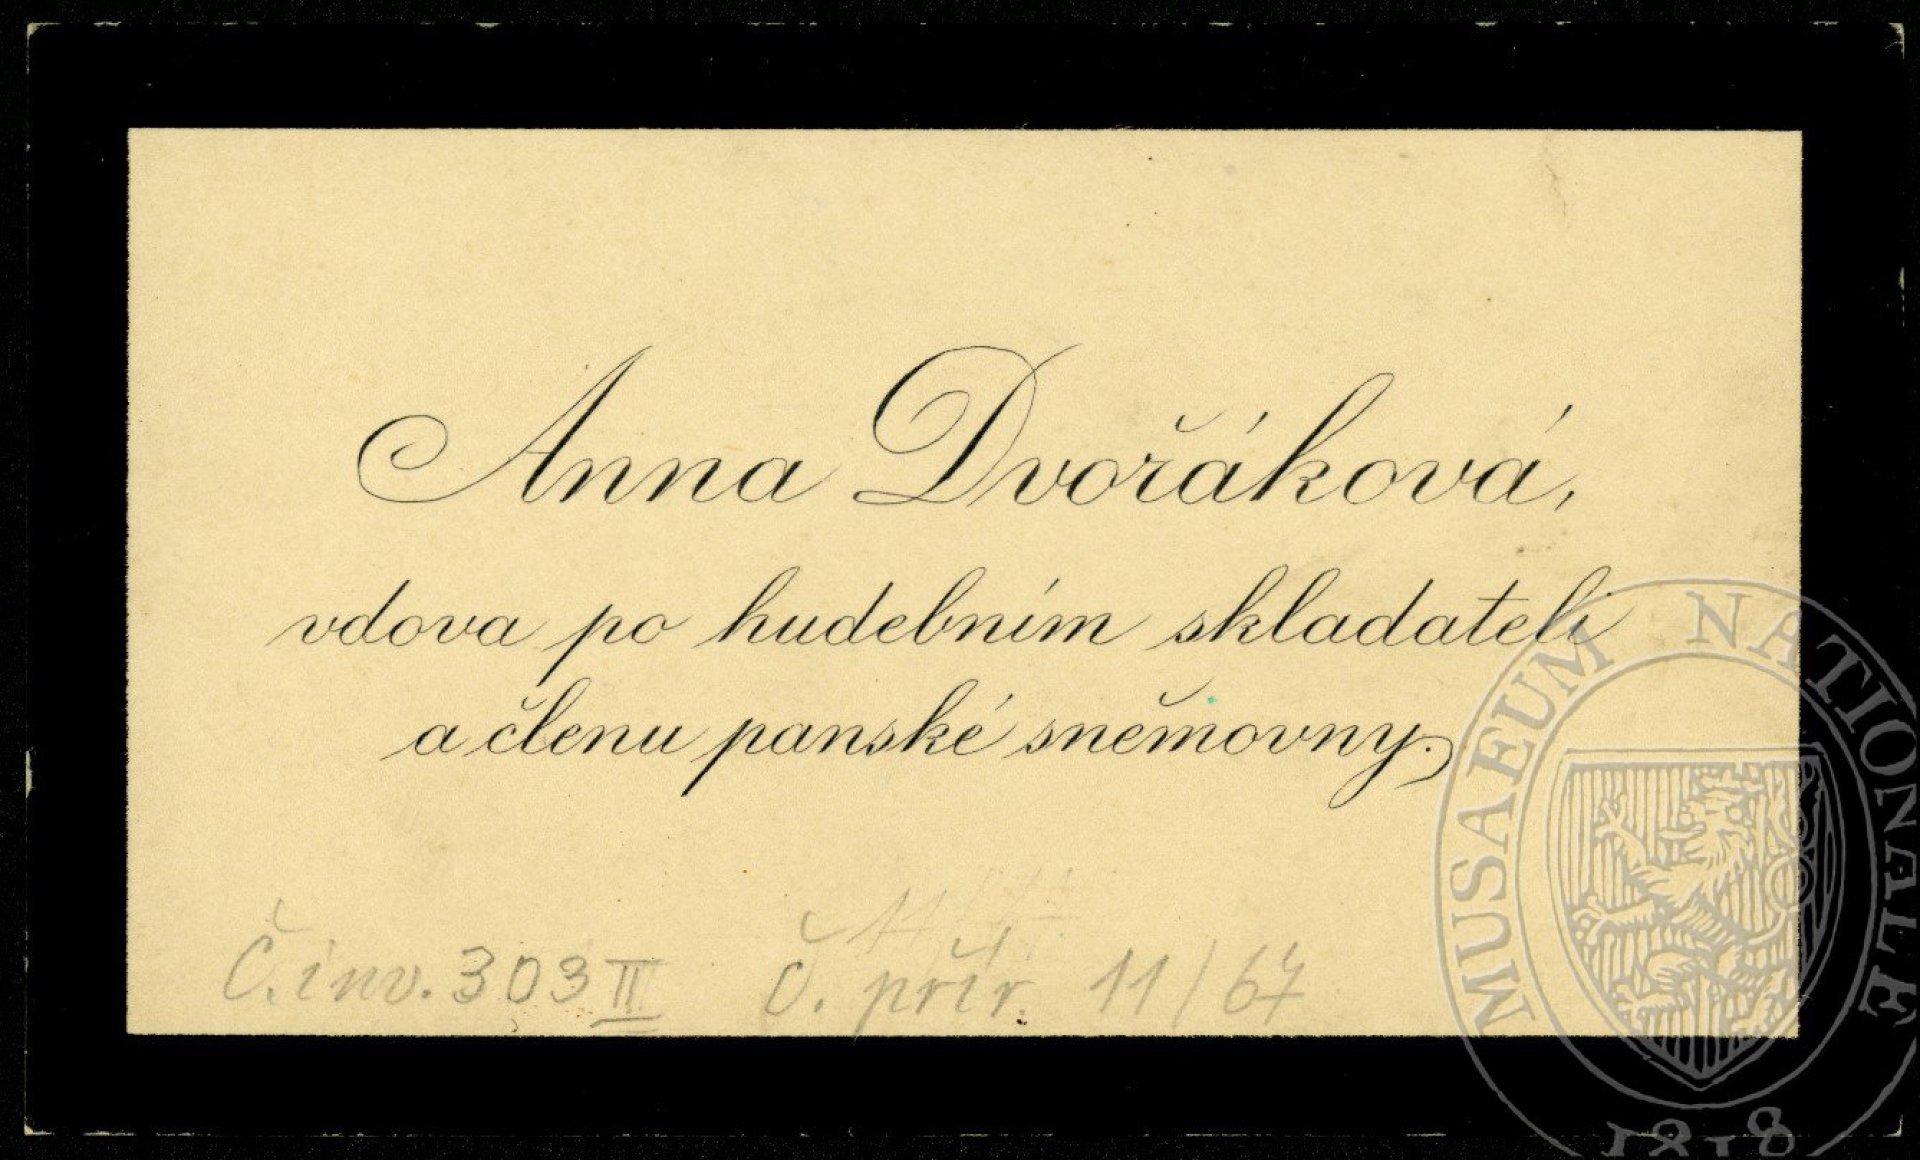 Anna Dvořáková,
vdova po hudebním skladateli
a členu panské sněmovny.
Č. inv. 303 II Č. přír. 11/67
MUSAEUM NATIONALE
1818